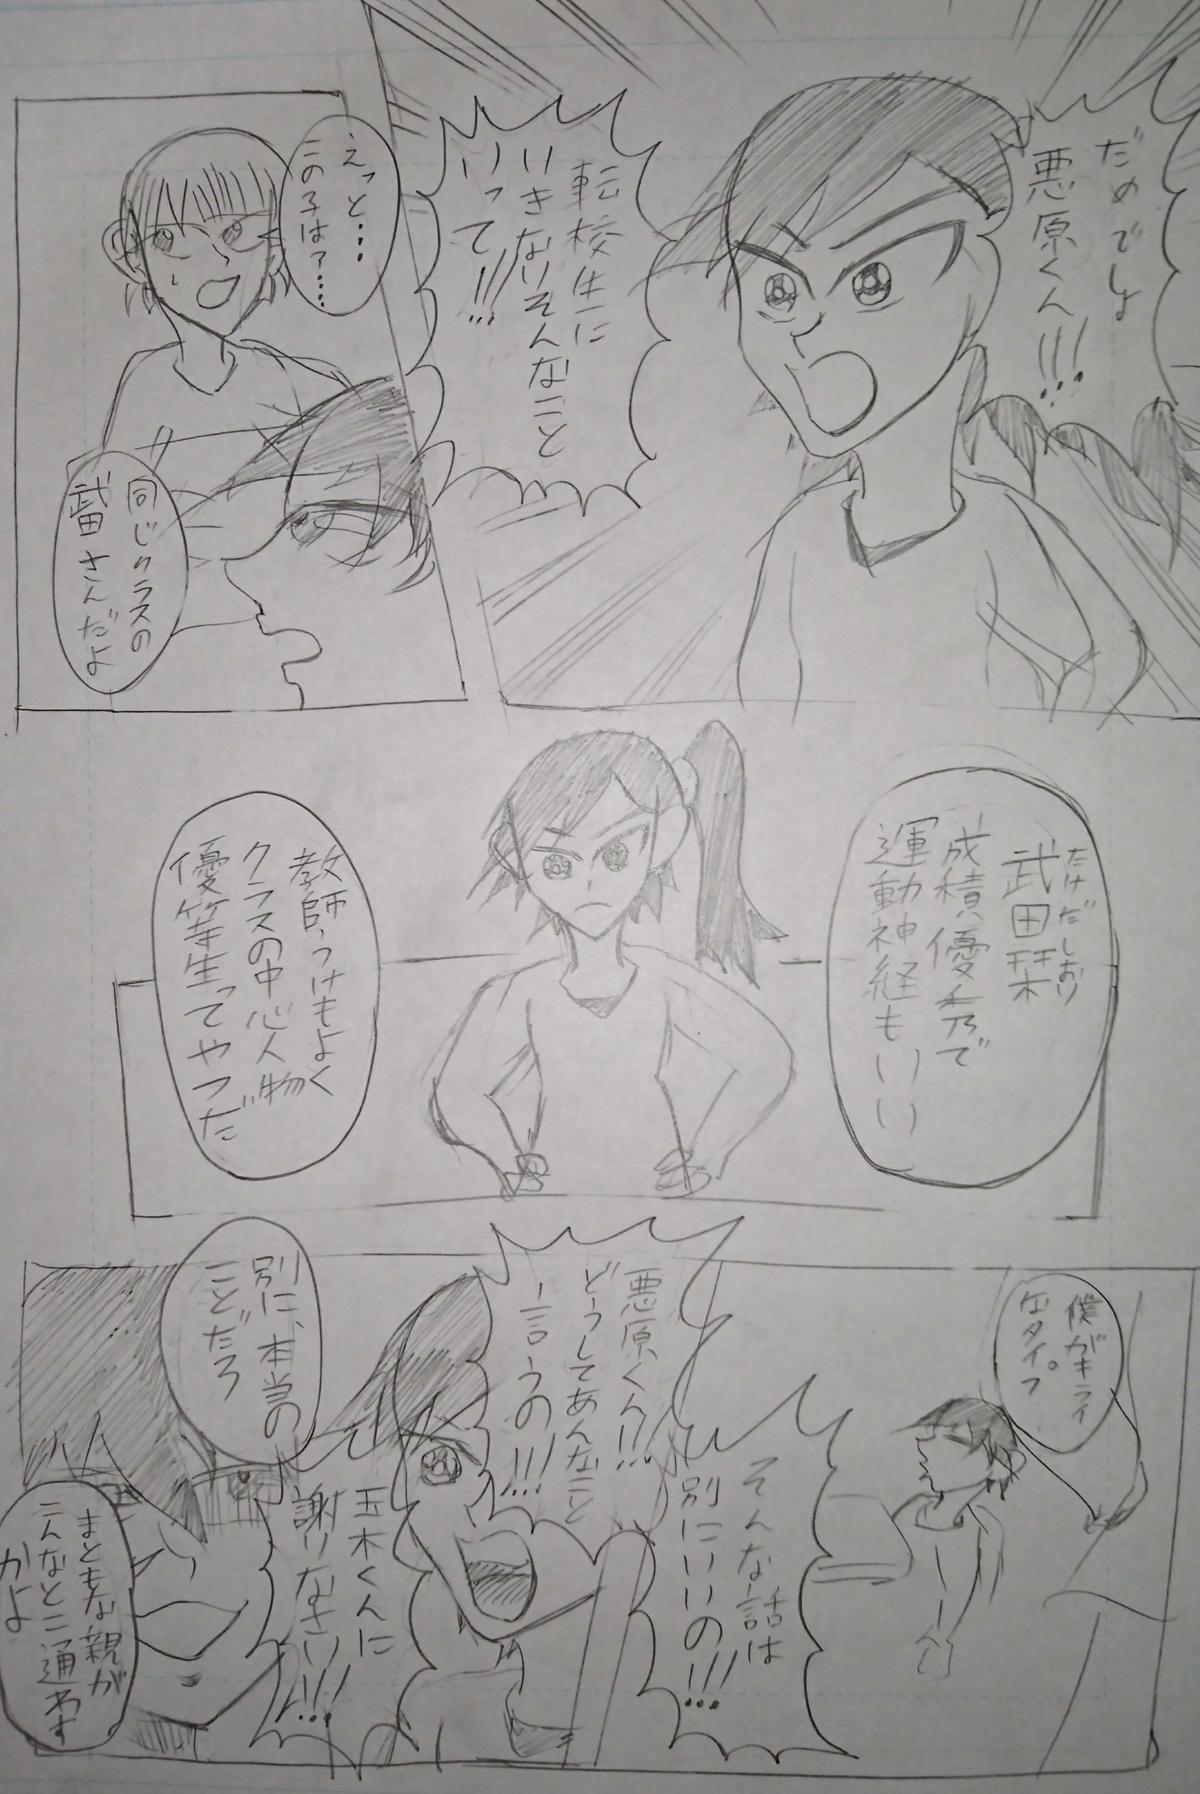 だめでしょ
悪原くん!!!
転校生に
いきなりそんなこと
いって!!!
えっと‥‥
この子は?‥‥
同じクラスの
武田さんだよ
たけだしおり
武田栞
成積優秀で
運動神経もいい
教師うけもよく
クラスの中心人物
優等生ってやつだ
僕がキライ
なタイプ。
そんな話は
別にいいの!!!
悪原くん!!
どうしてあんなこと
言うの!!!
玉木くんに
謝りなさい!!!
別に、本当の
ことだろ
まともな親が
こんなとこ通わす
かよ